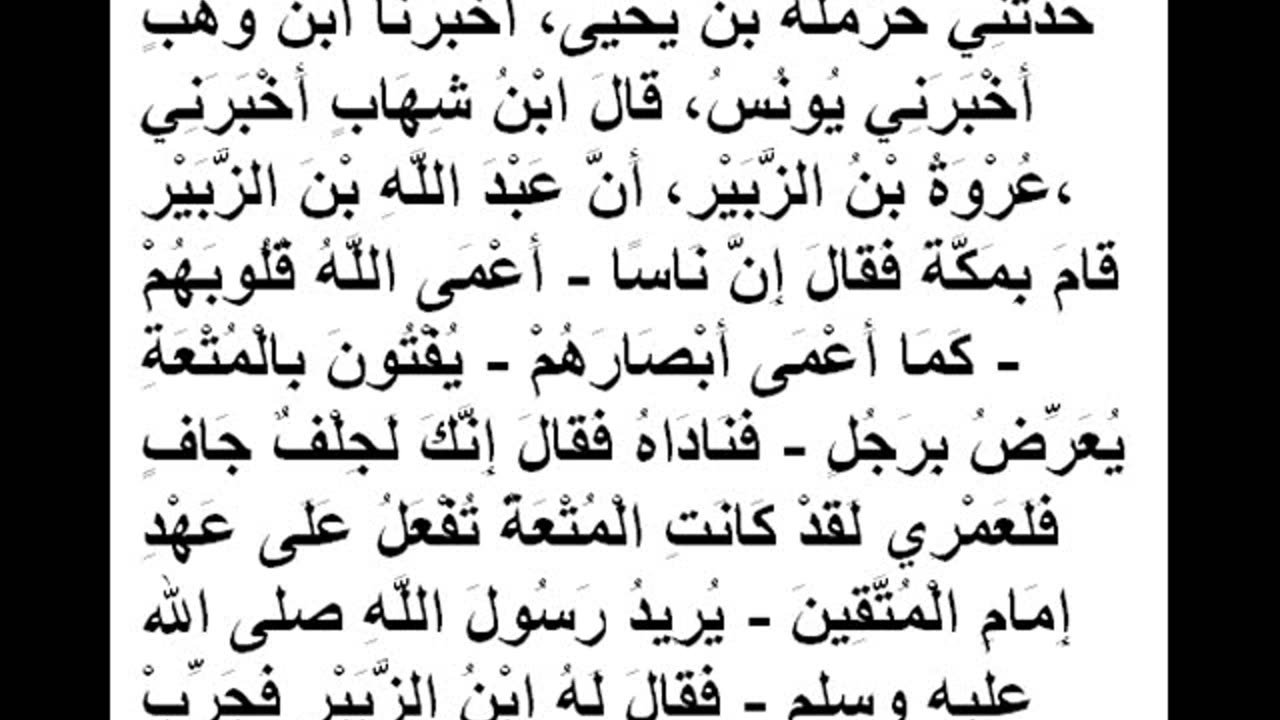 حدثني حرملة بن يحيى، أخبرنا ابن وهبٍ
أَخْبَرَنِي يُونُسُ، قَالَ ابْنُ شِهَابٍ أَخْبَرَنِي
عُرْوَةُ بْنُ الزُّبَيْرِ، أَنَّ عَبْدَ اللَّهِ بْنَ الزُّبَيْرِ،
قَامَ بِمَكَّةَ فَقَالَ إِنَّ نَاسًا - أَعْمَى اللَّهُ قُلُوبَهُمْ
كَمَا أَعْمَى أَبْصَارَهُمْ - يُفْتُونَ بِالْمُتْعَةِ -
يُعَرِّضُ بِرَجُلٍ - فَنَادَاهُ فَقَالَ إِنَّكَ لَجِلْفٌ جَافٍ
فَلَعَمْرِي لَقَدْ كَانَتِ الْمُتْعَةُ تُفْعَلُ عَلَى عَهْدِ
إِمَامِ الْمُتَّقِينَ - يُرِيدُ رَسُولَ اللَّهِ صلى الله
عليه وسلم - فَقَالَ لَهُ ابْنُ الزُّبَيْرِ فَجَرِّبْ